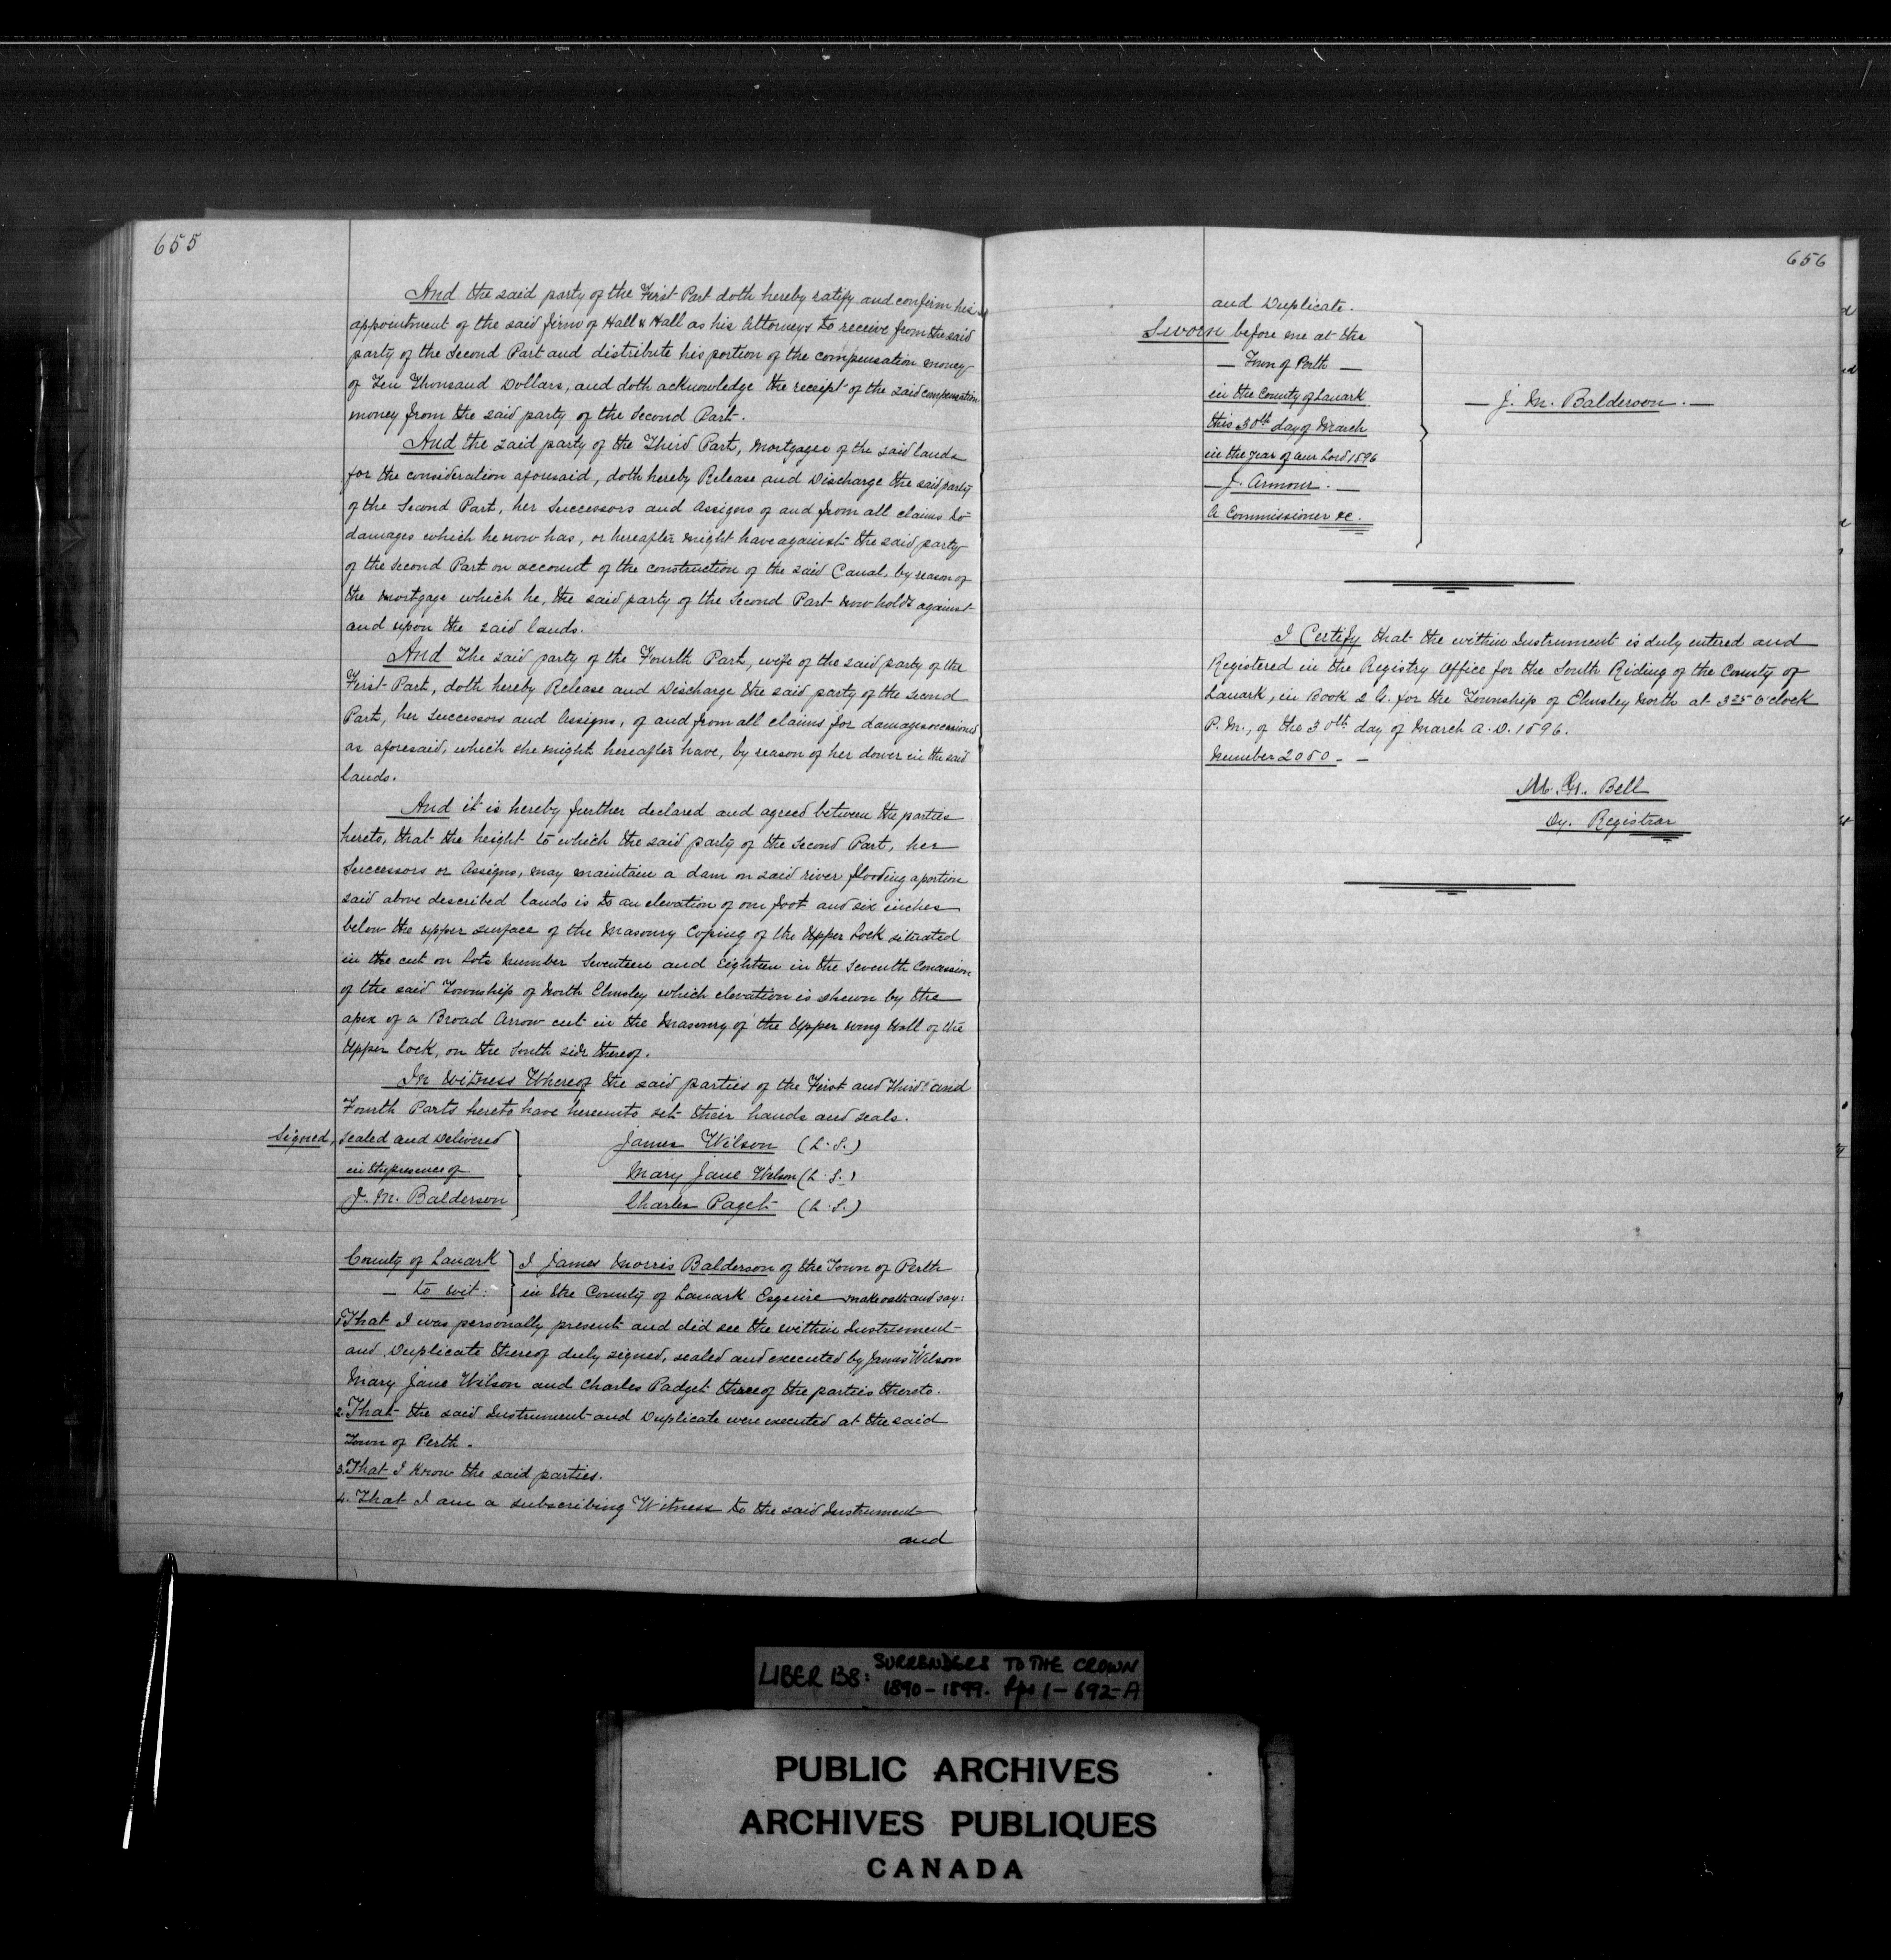 655
And the said party of the First Part doth hereby ratify and confirm his
appointment of the said firm of Hall & Hall as his Attorneys to receive from the said
party of the Second Part and distribute his portion of the compensation money
of Ten Thousand Dollars, and doth acknowledge the receipt of the said compensation
money from the said party of the Second Part.
And the said party of the Third Part, Mortgagee of the said lands
for the consideration aforesaid, doth hereby Release and Discharge the said party
of the Second Part, her Successors and Assigns of and from all claims to
damages which he now has, or hereafter might have against the said party
of the Second Part on account of the construction of the said Canal, by reason of
the Mortgage which he, the said party of the Second Part now holds against
and upon the said lands.
And The said party of the Fourth Part, wife of the said party of the
First Part, doth hereby Release and Discharge the said party of the Second
Part, her Successors and Assigns, of and from all claims for damages occasioned
as aforesaid, which she might hereafter have, by reason of her dower in the said
lands.
And it is hereby further declared and agreed between the parties
hereto, that the height to which the said party of the Second Part, her
Successors or Assigns, may maintain a dam on said river flooding a portion
said above described lands is to an elevation of one foot and six inches
below the upper surface of the Masonry Coping of the Upper Lock situated
in the cut on Lots Number Seventeen and Eighteen in the Seventh Concession
of the said Township of North Elmsley which elevation is shewn by the
apex of a Broad Arrow cut in the Masonry of the Upper wing Wall of the
Upper lock, on the South side thereof.
In Witness Whereof the said parties of the First and Third and
Fourth Parts hereto have hereunto set their hands and seals.
Signed, Sealed and Delivered
in the presence of
J. M. Balderson
James Wilson (L.S.)
Mary Jane Wilson (L.S.)
Charles Paget (L.S.)
County of Lanark
— to wit:
I James Morris Balderson of the Town of Perth
in the County of Lanark Esquire make oath and say:
1. That I was personally present and did see the within Instrument
and Duplicate thereof duly signed, sealed and executed by James Wilson
Mary Jane Wilson and Charles Padget three of the parties thereto.
2. That the said Instrument and Duplicate were executed at the said
Town of Perth.
3. That I know the said parties.
4. That I am a subscribing Witness to the said Instrument
and
656
and Duplicate.
Sworn before me at the
— Town of Perth —
in the County of Lanark
this 30th day of March
in the year of our Lord 1896
— J. Armour. —
A Commissioner &c.
— J. M. Balderson. —
I Certify that the within Instrument is duly entered and
Registered in the Registry Office for the South Riding of the County of
Lanark, in Book 2 G. for the Township of Elmsley North at 3 25 O'clock
P.M., of the 30th day of March A.D. 1896.
Number 2050. —
M. G. Bell
Dy. Registrar
LIBER 138: SURRENDERS TO THE CROWN
1890-1899. Pps 1-692-A
PUBLIC ARCHIVES
ARCHIVES PUBLIQUES
CANADA